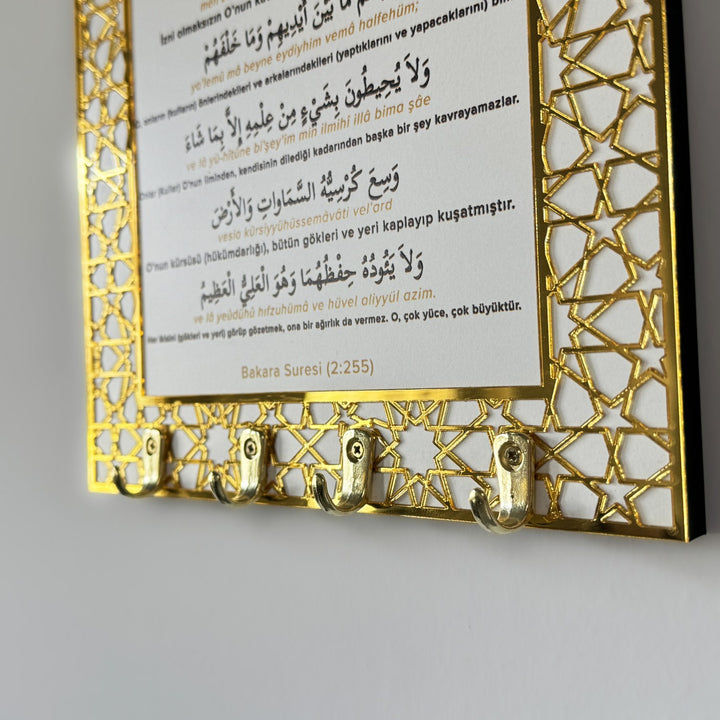 İzni olmaksızın O'nun
مَا بَيْنَ أَيْدِيهِمْ وَمَا خَلْفَهُمْ
ya'lemü mâ beyne eydiyhim vemâ halfehüm;
(kulların) önlerindekileri ve arkalarındakileri (yaptıklarını ve yapacaklarını)
وَلاَ يُحِيطُونَ بِشَيْءٍ مِنْ عِلْمِهِ إِلاَّ بِمَا شَاءَ
ve lâ yü-hîtûne bi'şey'im min ilmihî illâ bima şâe
(Kullar) O'nun ilminden, kendisinin dilediği kadarından başka bir şey kavrayamazlar.
وَسِعَ كُرْسِيُّهُ السَّمَاوَاتِ وَالأَرْضَ
vesia kürsiyyühüssemâvâti vel'ard
O'nun kürsüsü (hükümdarlığı), bütün gökleri ve yeri kaplayıp kuşatmıştır.
وَلاَ يَئُودُهُ حِفْظُهُمَا وَهُوَ الْعَلِيُّ الْعَظِيمُ
ve lâ yeûdühû hıfzuhümâ ve hüvel aliyyül azim.
Her ikisini (gökleri ve yeri) görüp gözetmek, ona bir ağırlık da vermez. O, çok yüce, çok büyüktür.
Bakara Suresi (2:255)